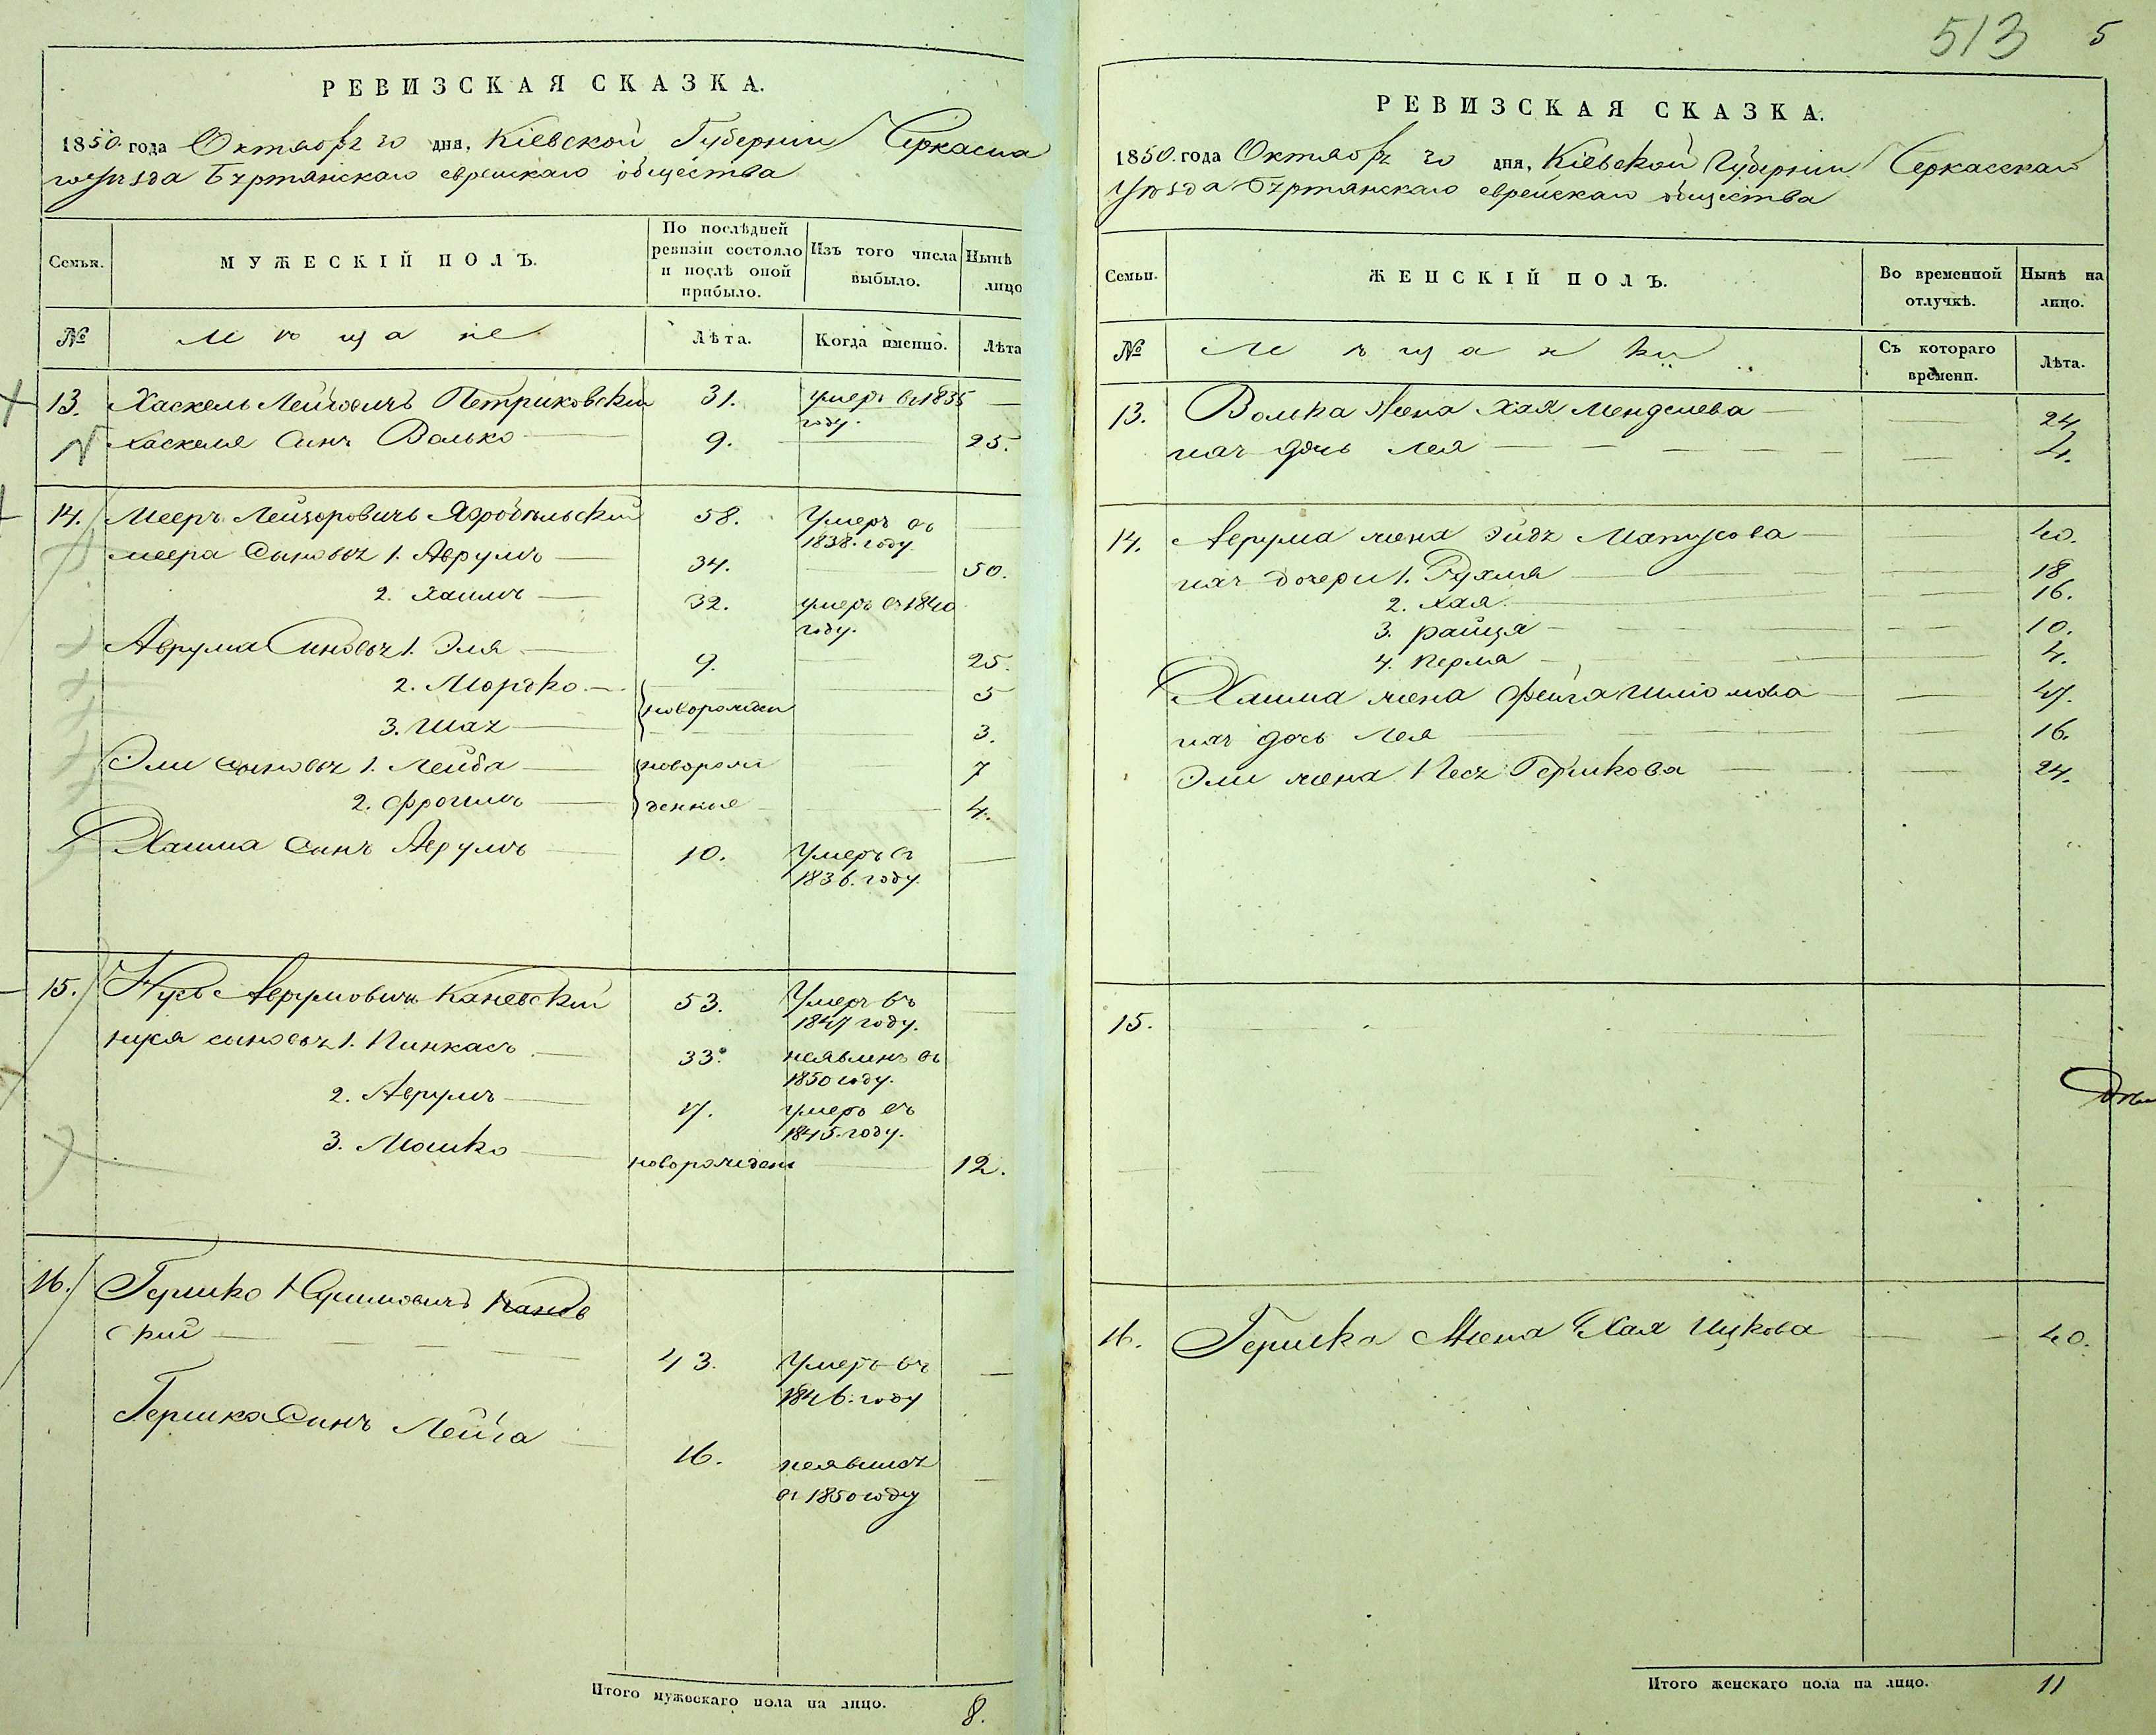 513 5
РЕВИЗСКАЯ СКАЗКА.
1850 года Октября 30 дня, Кіевской Губерніи Черкаска
го уѣзда еврейскаго общества
Семьи.
МУЖЕСКІЙ ПОЛЪ.
По послѣдней ревизіи состояло и послѣ оной прибыло.
Изъ того числа выбыло.
Нынѣ лицо
№
Мѣщане
Лѣта.
Когда именно.
Лѣта
13. Хаскель Петриковскій 31. умеръ въ 1835 году.
Хаскеля Синъ Волько 9. 25.
14. Мееръ Лейзоровичъ 58. Умеръ въ 1838. году
меера Сыновья 1. Аврумъ 34. 50.
2. Хаимъ 32. умеръ въ 1840 году.
Аврума Синовья 1. Эля 9. 25.
2. Мордко новорожден 5
3. Шая 3.
Эли сыновья 1. Лейба новорож 7
2. Фроимъ денные 4.
Хаима Синъ Аврумъ 10. Умеръ въ 1836. году
15. Нусь Аврумовичъ Каневскій 53. Умеръ въ 1847 году.
Нуся сыновья 1. Пинкасъ 33. неявленъ въ 1850 году.
2. Аврумъ 17. умеръ въ 1845. году.
3. Мошко новорожден 12.
16. Гершко Канев
скій 43. Умеръ въ 1846. году
Гершка Синъ 16. неявился въ 1850 году
Итого мужескаго пола на лицо. 8.
РЕВИЗСКАЯ СКАЗКА.
1850. года Октября 30 дня, Кіевской Губерніи Черкасскаго
Уѣзда еврейскаго общества
Семьи.
ЖЕНСКІЙ ПОЛЪ.
Во временной отлучкѣ.
Нынѣ на лицо.
№
Мѣщанки
Съ котораго времени.
Лѣта.
13. Волька Жена Хая Менделева 24
ихъ дочь Лея 4.
14. Аврума жена 40.
ихъ дочери 1. Рухля 18
2. Хая 16.
3. Райця 10.
4. Перля 4.
Хаима жена Фейга Шліомова 47.
ихъ дочь Лея 16.
Эли жена Песя Гершкова 24.
15.
16. Гершка Жена Хая Ицкова 40.
Итого женскаго пола на лицо. 11